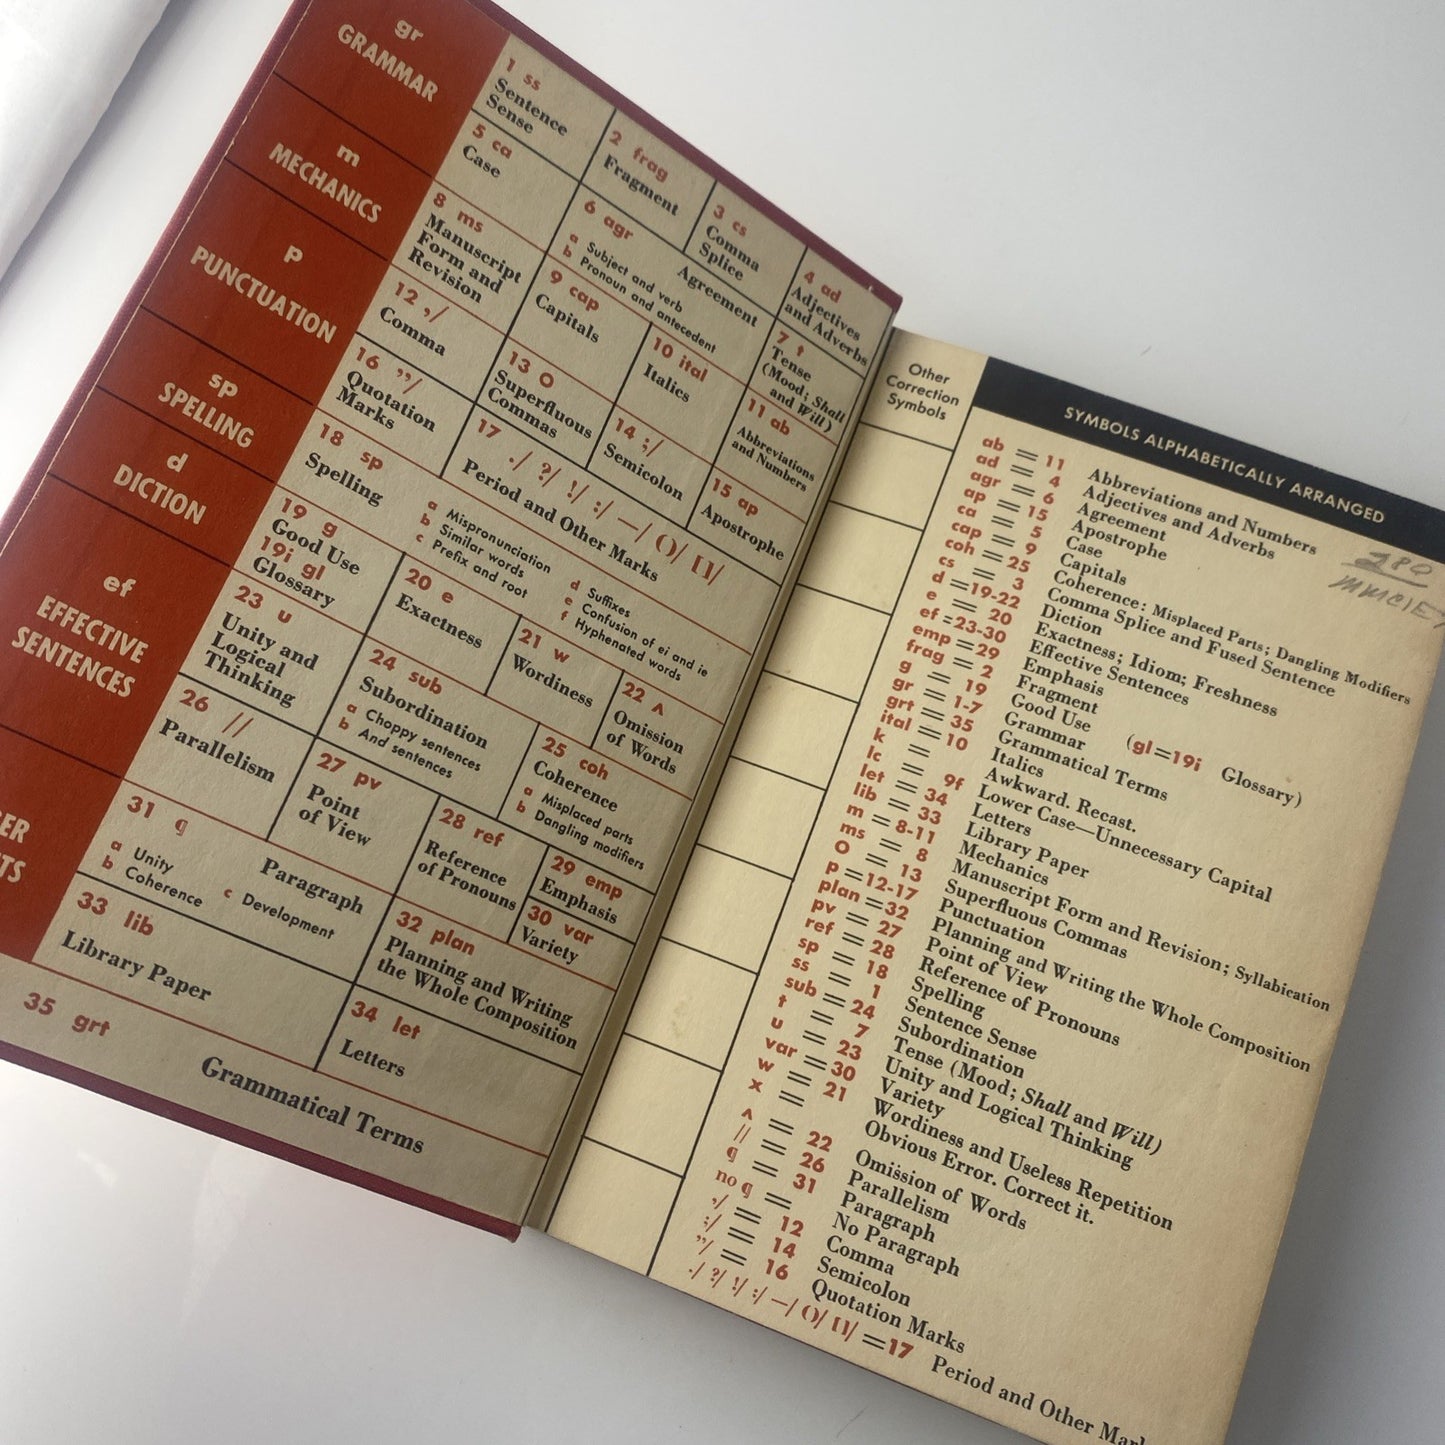 gr
GRAMMAR
1 ss
Sentence
Sense
2 frag
Fragment
3 cs
Comma
Splice
4 ad
Adjectives
and Adverbs
5 ca
Case
6 agr
a Subject and verb
b Pronoun and antecedent
Agreement
7 t
Tense
(Mood; Shall
and Will)
m
MECHANICS
8 ms
Manuscript
Form and
Revision
9 cap
Capitals
10 ital
Italics
11 ab
Abbreviations
and Numbers
p
PUNCTUATION
12 ,/
Comma
13 O
Superfluous
Commas
14 ;/
Semicolon
15 ap
Apostrophe
16 ”/
Quotation
Marks
17 ./ ?/ !/ :/ —/ ( )/ [ ]/
Period and Other Marks
sp
SPELLING
18 sp
Spelling
a Mispronunciation
b Similar words
c Prefix and root
d Suffixes
e Confusion of ei and ie
f Hyphenated words
d
DICTION
19 g
Good Use
19i gl
Glossary
20 e
Exactness
21 w
Wordiness
22 ^
Omission
of Words
ef
EFFECTIVE
SENTENCES
23 u
Unity and
Logical
Thinking
24 sub
Subordination
a Choppy sentences
b And sentences
25 coh
Coherence
a Misplaced parts
b Dangling modifiers
26 //
Parallelism
27 pv
Point
of View
28 ref
Reference
of Pronouns
29 emp
Emphasis
30 var
Variety
31 ¶
a Unity
b Coherence
c Development
Paragraph
32 plan
Planning and Writing
the Whole Composition
33 lib
Library Paper
34 let
Letters
35 grt
Grammatical Terms
Other
Correction
Symbols
SYMBOLS ALPHABETICALLY ARRANGED
280
ab = 11 Abbreviations and Numbers
ad = 4 Adjectives and Adverbs
agr = 6 Agreement
ap = 15 Apostrophe
ca = 5 Case
cap = 9 Capitals
coh = 25 Coherence: Misplaced Parts; Dangling Modifiers
cs = 3 Comma Splice and Fused Sentence
d =19-22 Diction
e = 20 Exactness; Idiom; Freshness
ef =23-30 Effective Sentences
emp =29 Emphasis
frag = 2 Fragment
g = 19 Good Use (gl=19i Glossary)
gr = 1-7 Grammar
grt = 35 Grammatical Terms
ital = 10 Italics
k = Awkward. Recast.
lc = 9f Lower Case—Unnecessary Capital
let = 34 Letters
lib = 33 Library Paper
m = 8-11 Mechanics
ms = 8 Manuscript Form and Revision; Syllabication
O = 13 Superfluous Commas
p =12-17 Punctuation
plan =32 Planning and Writing the Whole Composition
pv = 27 Point of View
ref = 28 Reference of Pronouns
sp = 18 Spelling
ss = 1 Sentence Sense
sub = 24 Subordination
t = 7 Tense (Mood; Shall and Will)
u = 23 Unity and Logical Thinking
var =30 Variety
w = 21 Wordiness and Useless Repetition
x = Obvious Error. Correct it.
^ = 22 Omission of Words
// = 26 Parallelism
¶ = 31 Paragraph
no ¶ = No Paragraph
,/ = 12 Comma
;/ = 14 Semicolon
”/ = 16 Quotation Marks
./ ?/ !/ :/ —/ ( )/ [ ]/ =17 Period and Other